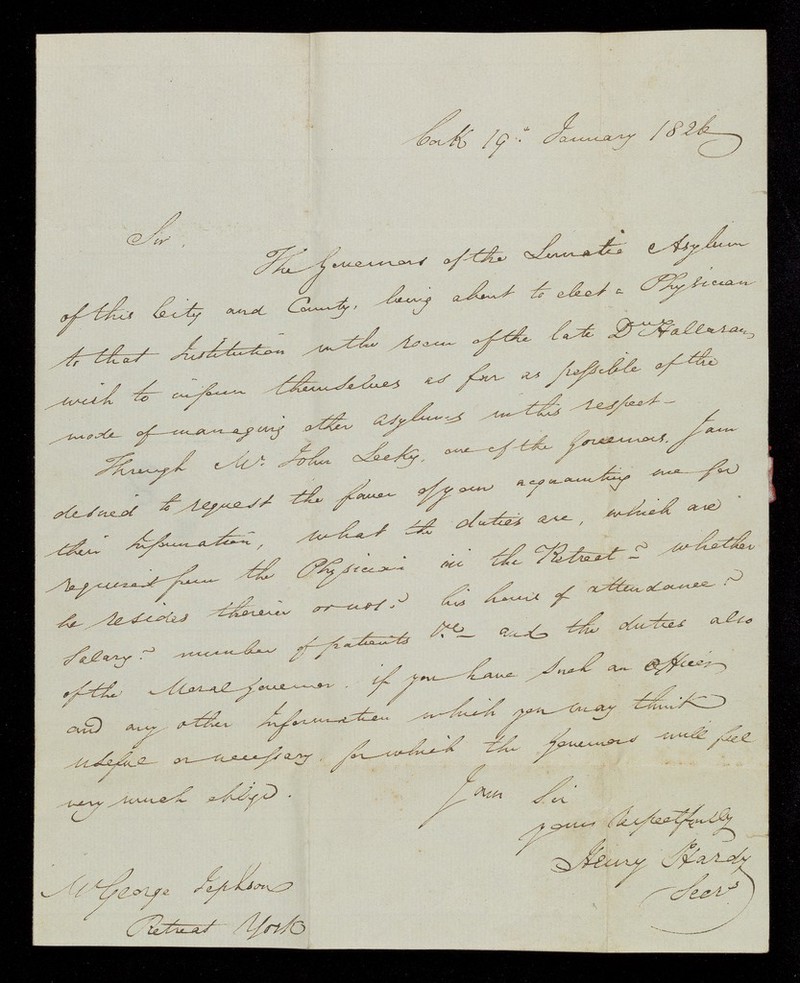 Cork 19th January 1826
Sir,
The Governors of the Lunatic Asylum
of this City and County, being about to elect a Physician
to that Institution in the room of the late Dr. Hallaran,
wish to inform themselves as far as possible of the
mode of managing other asylums in this respect -
Through Mr. John Lecky, one of the Governors, I am
desired to request the favor of your acquainting me for
their Information, what the duties are, which are
required from the Physician in the Retreat - ? whether
he resides therein or not ? his hours of attendance ?
Salary ? number of patients &c - and the duties also
of the Moral Governor, if you have such an officer,
and any other Information which you may think
useful or necessary for which the Governors will feel
very much obliged.
I am Sir
yours respectfully
Henry Hardy
Secry
Mr George Jephson
Retreat York